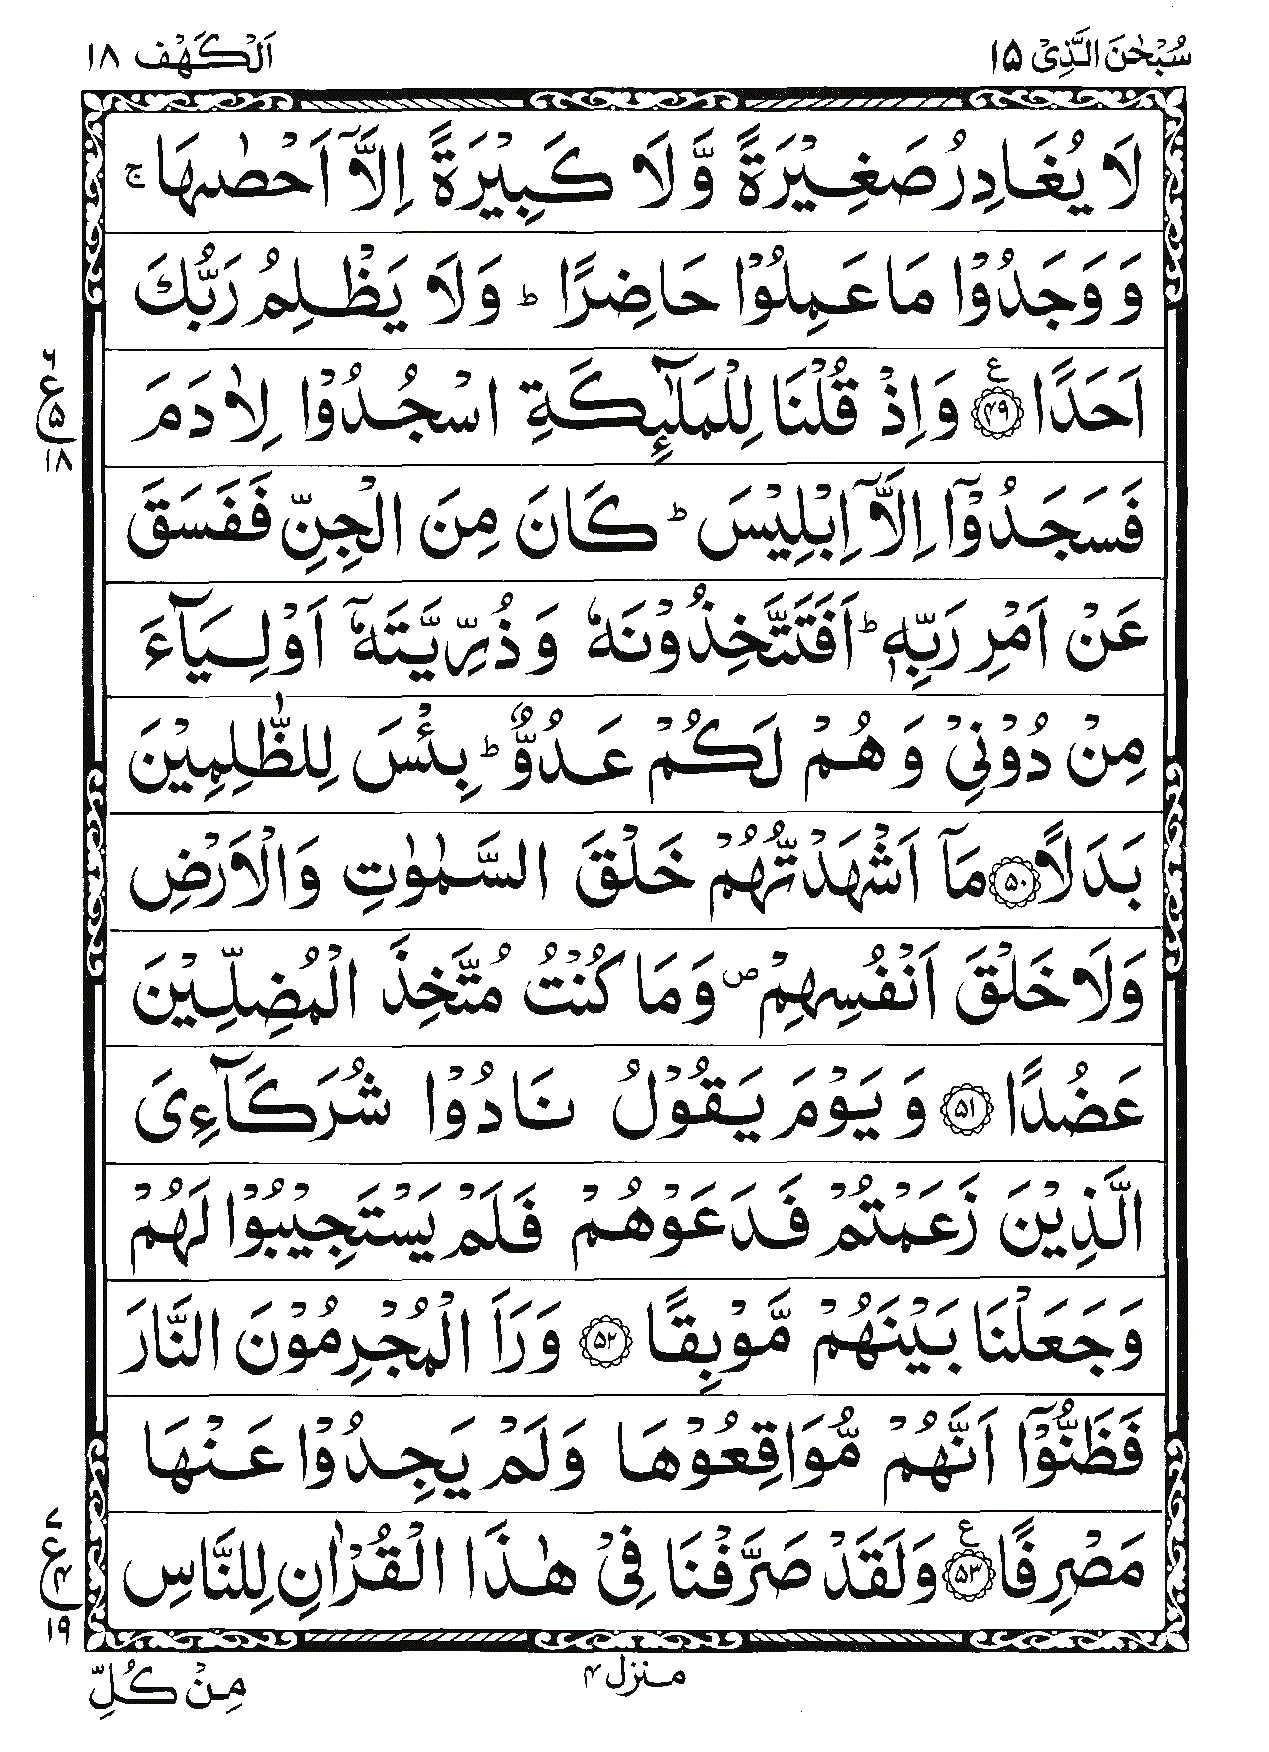 سُبْحٰنَ الَّذِیْ ۱۵
اَلْكَهْف ۱۸
لَا یُغَادِرُ صَغِیْرَةً وَّ لَا كَبِیْرَةً اِلَّاۤ اَحْصٰىهَا ۚ
وَ وَجَدُوْا مَا عَمِلُوْا حَاضِرًا ؕ وَلَا یَظْلِمُ رَبُّكَ
اَحَدًا ﴿۴۹﴾ ع وَاِذْ قُلْنَا لِلْمَلٰٓىِٕكَةِ اسْجُدُوْا لِاٰدَمَ
ع ۶ ۵ ۱۸
فَسَجَدُوْۤا اِلَّاۤ اِبْلِیْسَ ؕ كَانَ مِنَ الْجِنِّ فَفَسَقَ
عَنْ اَمْرِ رَبِّهٖ ؕ اَفَتَتَّخِذُوْنَهٗ وَ ذُرِّیَّتَهٗۤ اَوْلِیَآءَ
مِنْ دُوْنِیْ وَ هُمْ لَكُمْ عَدُوٌّ ؕ بِئْسَ لِلظّٰلِمِیْنَ
بَدَلًا ﴿۵۰﴾ مَاۤ اَشْهَدْتُّهُمْ خَلْقَ السَّمٰوٰتِ وَالْاَرْضِ
وَلَا خَلْقَ اَنْفُسِهِمْ ۪ وَمَا كُنْتُ مُتَّخِذَ الْمُضِلِّیْنَ
عَضُدًا ﴿۵۱﴾ وَ یَوْمَ یَقُوْلُ نَادُوْا شُرَكَآءِیَ
الَّذِیْنَ زَعَمْتُمْ فَدَعَوْهُمْ فَلَمْ یَسْتَجِیْبُوْا لَهُمْ
وَجَعَلْنَا بَیْنَهُمْ مَّوْبِقًا ﴿۵۲﴾ وَرَاَ الْمُجْرِمُوْنَ النَّارَ
فَظَنُّوْۤا اَنَّهُمْ مُّوَاقِعُوْهَا وَلَمْ یَجِدُوْا عَنْهَا
مَصْرِفًا ﴿۵۳﴾ ع وَلَقَدْ صَرَّفْنَا فِیْ هٰذَا الْقُرْاٰنِ لِلنَّاسِ
ع ۷ ۴ ۱۹
منزل ۴
مِنْ كُلِّ